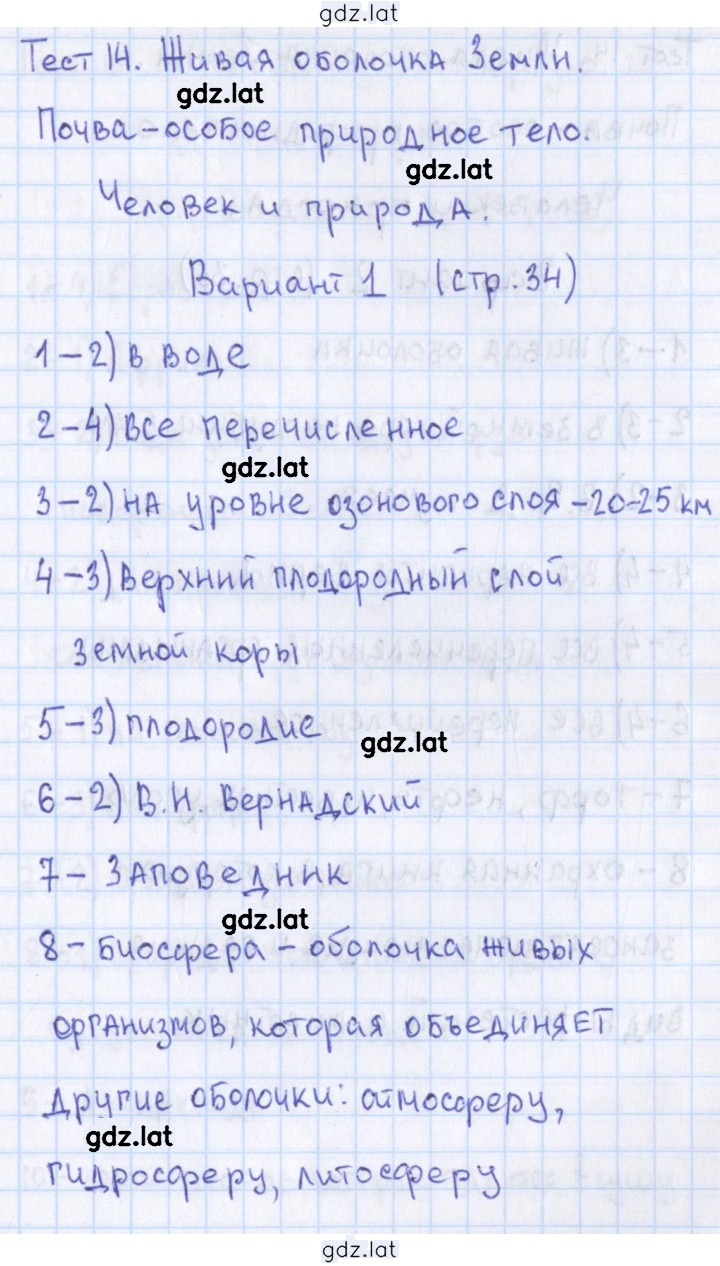 gdz.lat
Тест 14. Живая оболочка Земли.
gdz.lat
Почва - особое природное тело.
gdz.lat
Человек и природа.
Вариант 1 (стр. 34)
1 - 2) в воде
2 - 4) все перечисленное
gdz.lat
3 - 2) на уровне озонового слоя - 20-25 км
4 - 3) верхний плодородный слой
земной коры
5 - 3) плодородие
gdz.lat
6 - 2) В.И. Вернадский
7 - заповедник
gdz.lat
8 - биосфера - оболочка живых
организмов, которая объединяет
другие оболочки: атмосферу,
gdz.lat
гидросферу, литосферу
gdz.lat